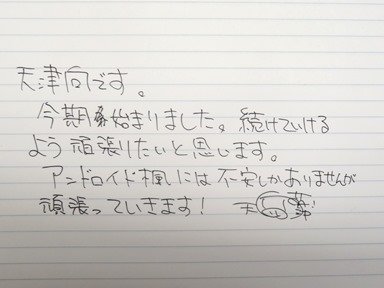 天津向です。
今期始まりました。続けていける
よう頑張りたいと思います。
アンドロイド楓には不安しかありませんが
頑張っていきます！ 天